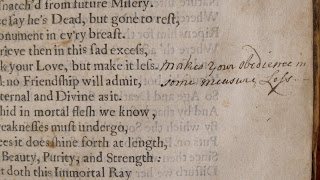 natch'd from future Misery.
e say he's Dead, but gone to rest,
onument in ev'ry breast.
rieve then in this sad excess,
k your Love, but make it less.
makes your obedience in
some measure Less
no Friendship will admit,
ternal and Divine as it.
hid in mortal flesh we know,
eaknesses must undergo,
es it does shine forth at length,
Beauty, Purity, and Strength:
t doth this Immortal Ray